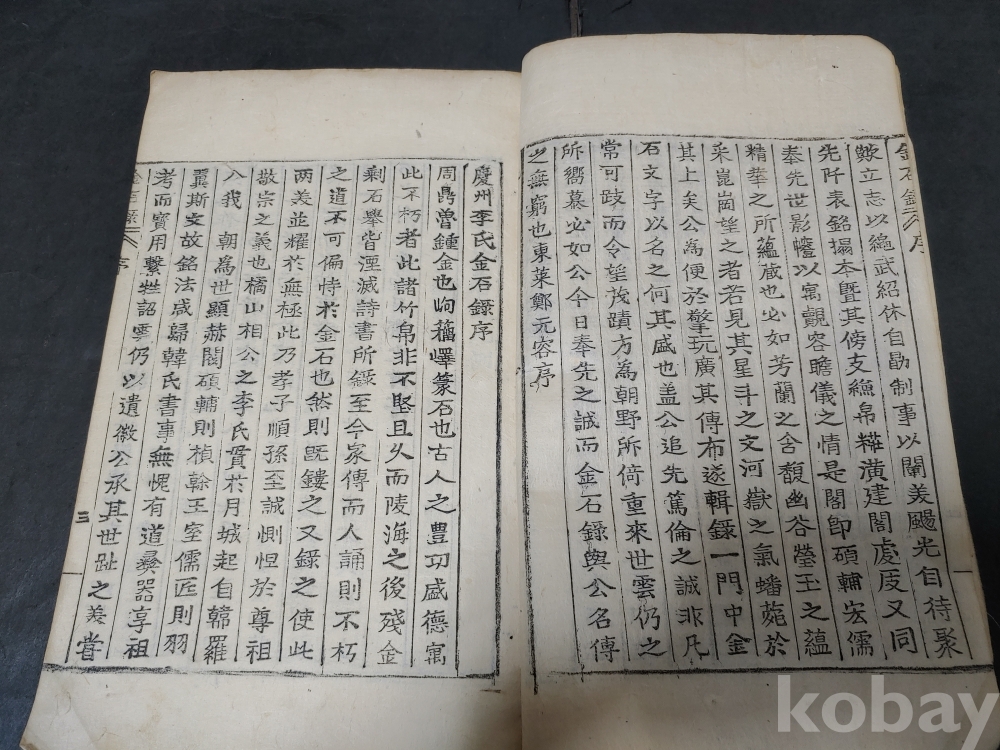 金石錄序
聚
歟立志以繩武紹休自勖制事以闡美颺光自待
先阡表銘搨本曁其傍支緦帛糚潢建閣處庋又同
奉先世影幢以寓覿容瞻儀之情是閣卽碩輔宏儒
精華之所蘊蔵也必如芳蘭之含馥幽谷瑩玉之蘊
采崑崗望之者若見其星斗之文河嶽之氣蟠菀於
其上矣公為便於擎玩廣其傳布遂輯錄一門中金
石文字以名之何其盛也盖公追先篤倫之誠非凡
常可跂而令望茂蹟方為朝野所倚重來世雲仍之
所嚮慕必如公今日奉先之誠而金石錄與公名傳
之無窮也東萊鄭元容序
慶州李氏金石錄序
周鼎魯鍾金也岣䕌嶧篆石也古人之豊功盛德寓
此不朽者此諸竹帛非不堅且久而陵海之後殘金
剩石擧皆湮滅詩書所錄至今家傳而人誦則不朽
之道不可偏恃於金石也然則旣鏤之又錄之使此
兩美並耀於無極此乃孝子順孫至誠惻怛於尊祖
敬宗之義也橘山相公之李氏貫於月城起自韓羅
入我 朝為世顯赫閥碩輔則楨榦王室儒匠則羽
翼斯文故銘法咸歸韓氏書事無愧有道彛器享祖
考而寶用繫牲詔雲仍以遺徽公承其世趾之美嘗
三